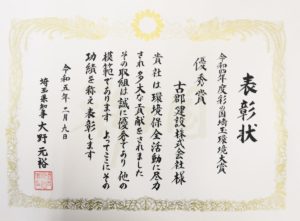 表彰状
令和四年度彩の国埼玉環境大賞
優秀賞
古郡建設株式会社様
貴社は環境保全活動に尽力
され多大な貢献をされました
その取組は誠に優秀であり他の
模範であります よってここにその
功績を称え表彰します
令和五年二月九日
埼玉県知事 大野元裕